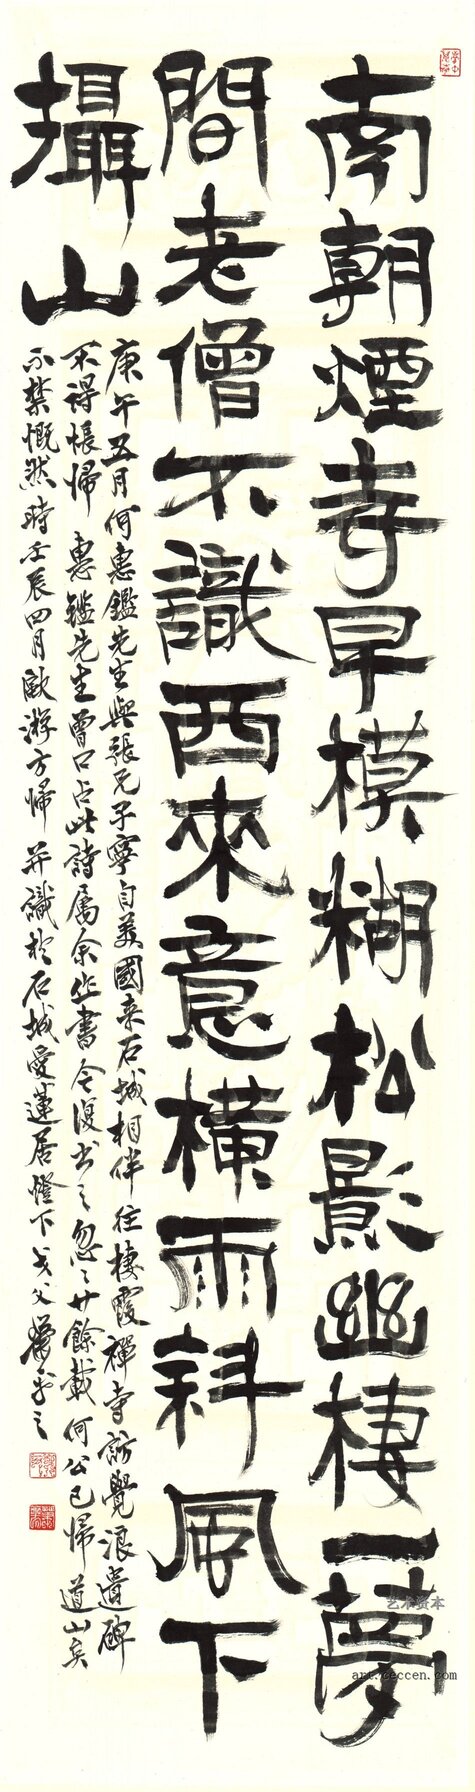 南朝煙寺早模糊松影幽棲一夢
間老僧不識西來意橫雨斜風下
攝山
庚午五月何惠鑑先生與張兄子寧自美國来石城相伴往棲霞禪寺訪覺浪遺碑
不得悵歸惠鑑先生曾口占此詩屬余作書今復書之忽之廿餘載何公已歸道山矣
不禁慨然時壬辰四月歐游方歸并識於石城愛蓮居燈下
艺术资本
art.ceccen.com